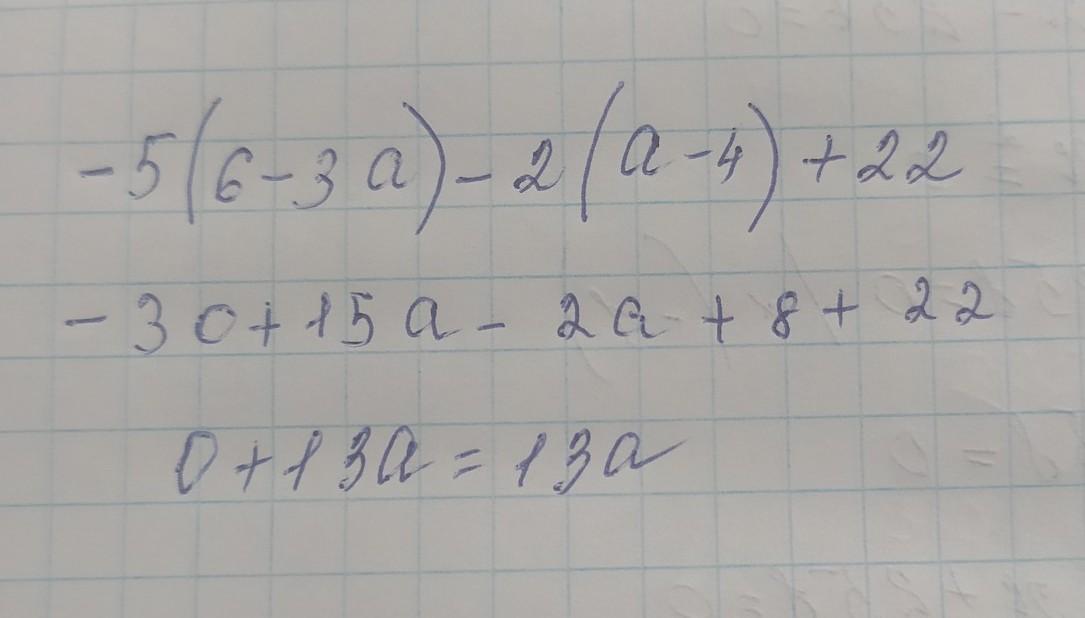 -5(6-3a)-2(a-4)+22
-30+15a-2a+8+22
0+13a=13a